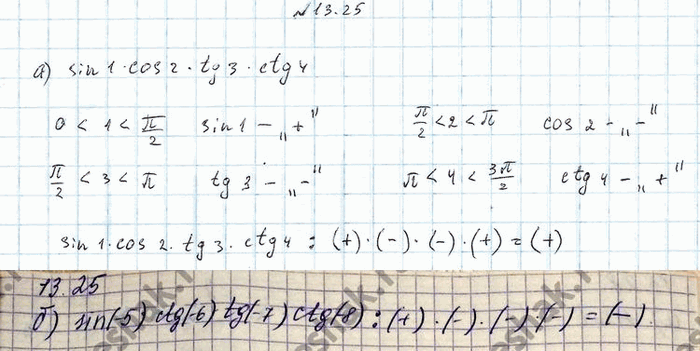 №13.25
а) sin 1 · cos 2 · tg 3 · ctg 4
0 < 1 < π/2 sin 1 – „+" π/2 < 2 < π cos 2 – „–"
π/2 < 3 < π tg 3 – „–" π < 4 < 3π/2 ctg 4 – „+"
sin 1 · cos 2 · tg 3 · ctg 4 : (+) · (–) · (–) · (+) = (+)
13.25
б) sin(-5) ctg(-6) tg(-7) ctg(-8) : (+) · (–) · (–) · (–) = (–)